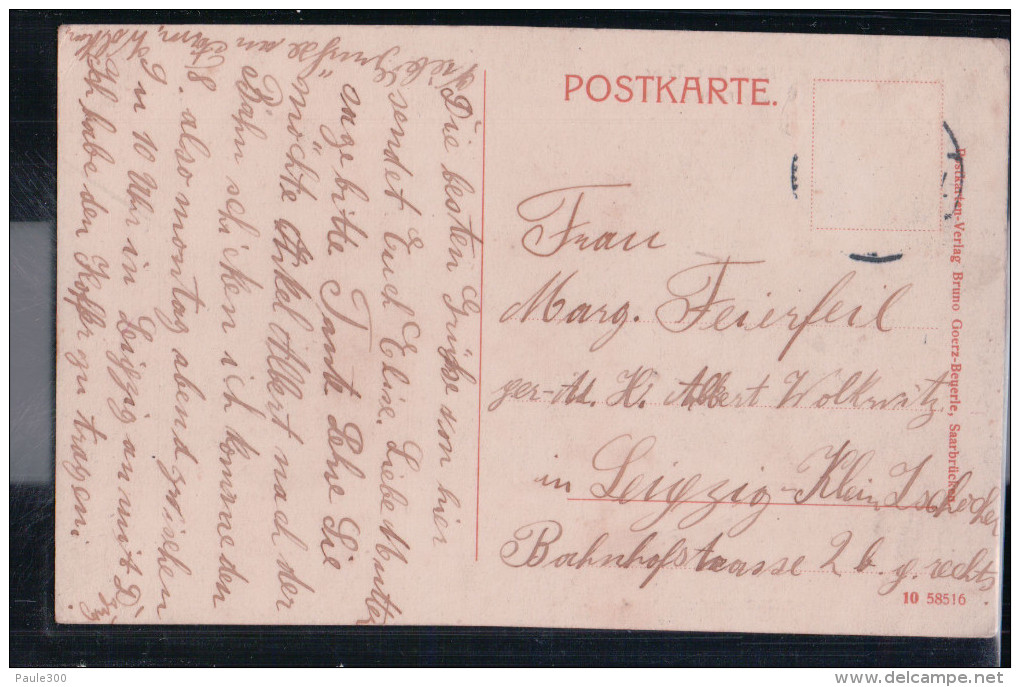 POSTKARTE.
Die besten Grüße von hier
sendet Euch Elise. Liebe Mutter
sage bitte Tante Lehre Sie
möchte Onkel Albert nach der
Bahn schicken ich komme den
8. also montag abend zwischen
9 u 10 Uhr in Leipzig an mit D
Zug
Ich habe den Koffer zu tragen.
Viele Grüße an Fam. Wolkw
Frau
Marg. Feierfeil
per Ad. H. Albert Wolkwitz
in Leipzig-Klein Zschocher
Bahnhofstrasse 2 b. g. rechts
Postkarten-Verlag Bruno Goerz-Beuerle, Saarbrücken
10 58516
Paule300
delcampe.net